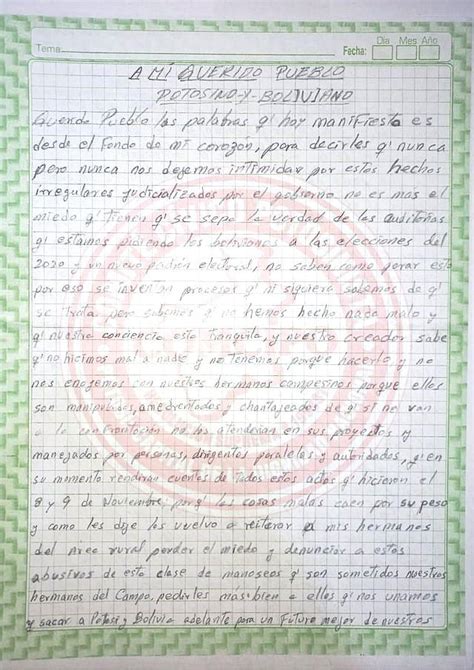 Tema:
Fecha:
Dia Mes Año
A MÍ QUERIDO PUEBLO
POTOSINO-Y-BOLIVIANO
Querido Pueblo las palabras q' hoy manifiesto es
desde el fondo de mi corazón, para decirles q' nunca
pero nunca nos dejemos intimidar por estos hechos
irregulares judicializados por el gobierno no es mas el
miedo q' tienen q' se sepa la verdad de las auditorias
q' estamos pidiendo los bolivianos a las elecciones del
2020 y un nuevo padrón electoral, no saben como parar esto
por eso se inventan procesos q' ni siquiera sabemos de q'
se trata pero sabemos q' no hemos hecho nada malo y
q' nuestra conciencia esta tranquila, y nuestro creador sabe
q' no hicimos mal a nade y no tenemos porque hacerlo y no
nos enojemos con nuestros hermanos campesinos porque ellos
son manipulados, amedrentados y chantajeados de q' si no van
a la confrontación no los atenderian en sus proyectos y
manejados por personas, dirigentes paralelas y autoridades, q' en
su momento rendiran cuentas de todos estos actos q' hicieron el
8 y 9 de Noviembre porq' las cosas malas caen por su peso
y como les dije los vuelvo a reiterar a mis hermanos
del area rural perder el miedo y denunciar a estos
abusivos de esta clase de manoseos q' son sometidos nuestros
hermanos del Campo, pedirles mas bien a ellos q' nos unamos
y sacar a Potosi y Bolivia adelante para un futuro mejor de nuestros